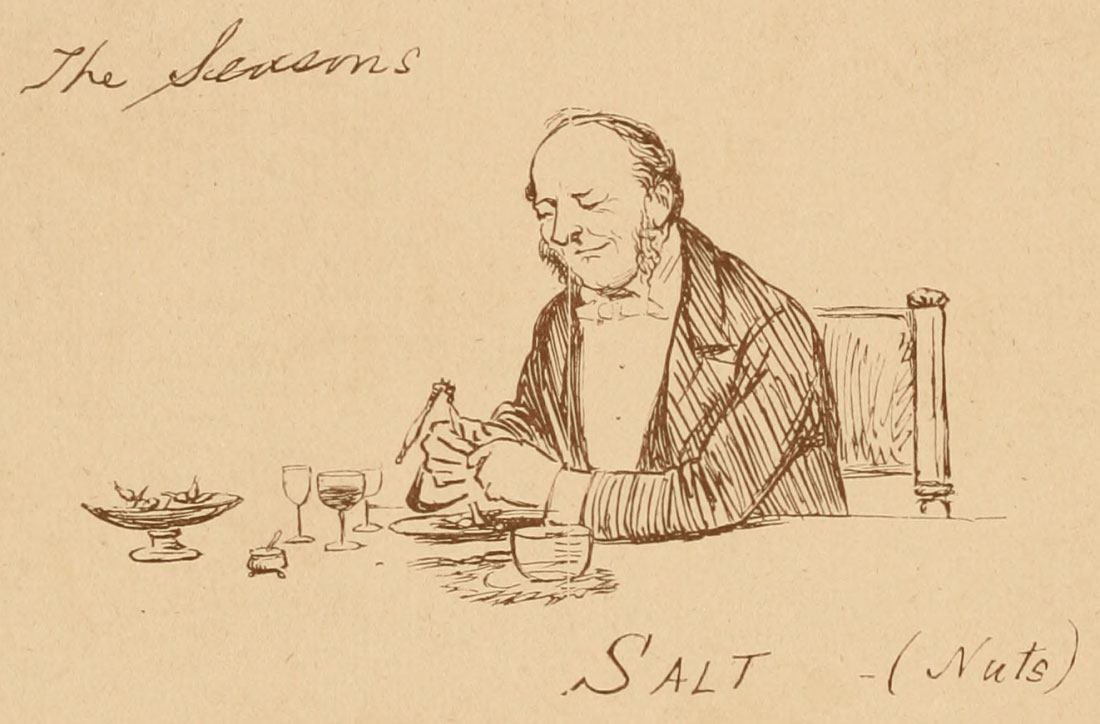 The Seasons
SALT - (Nuts)